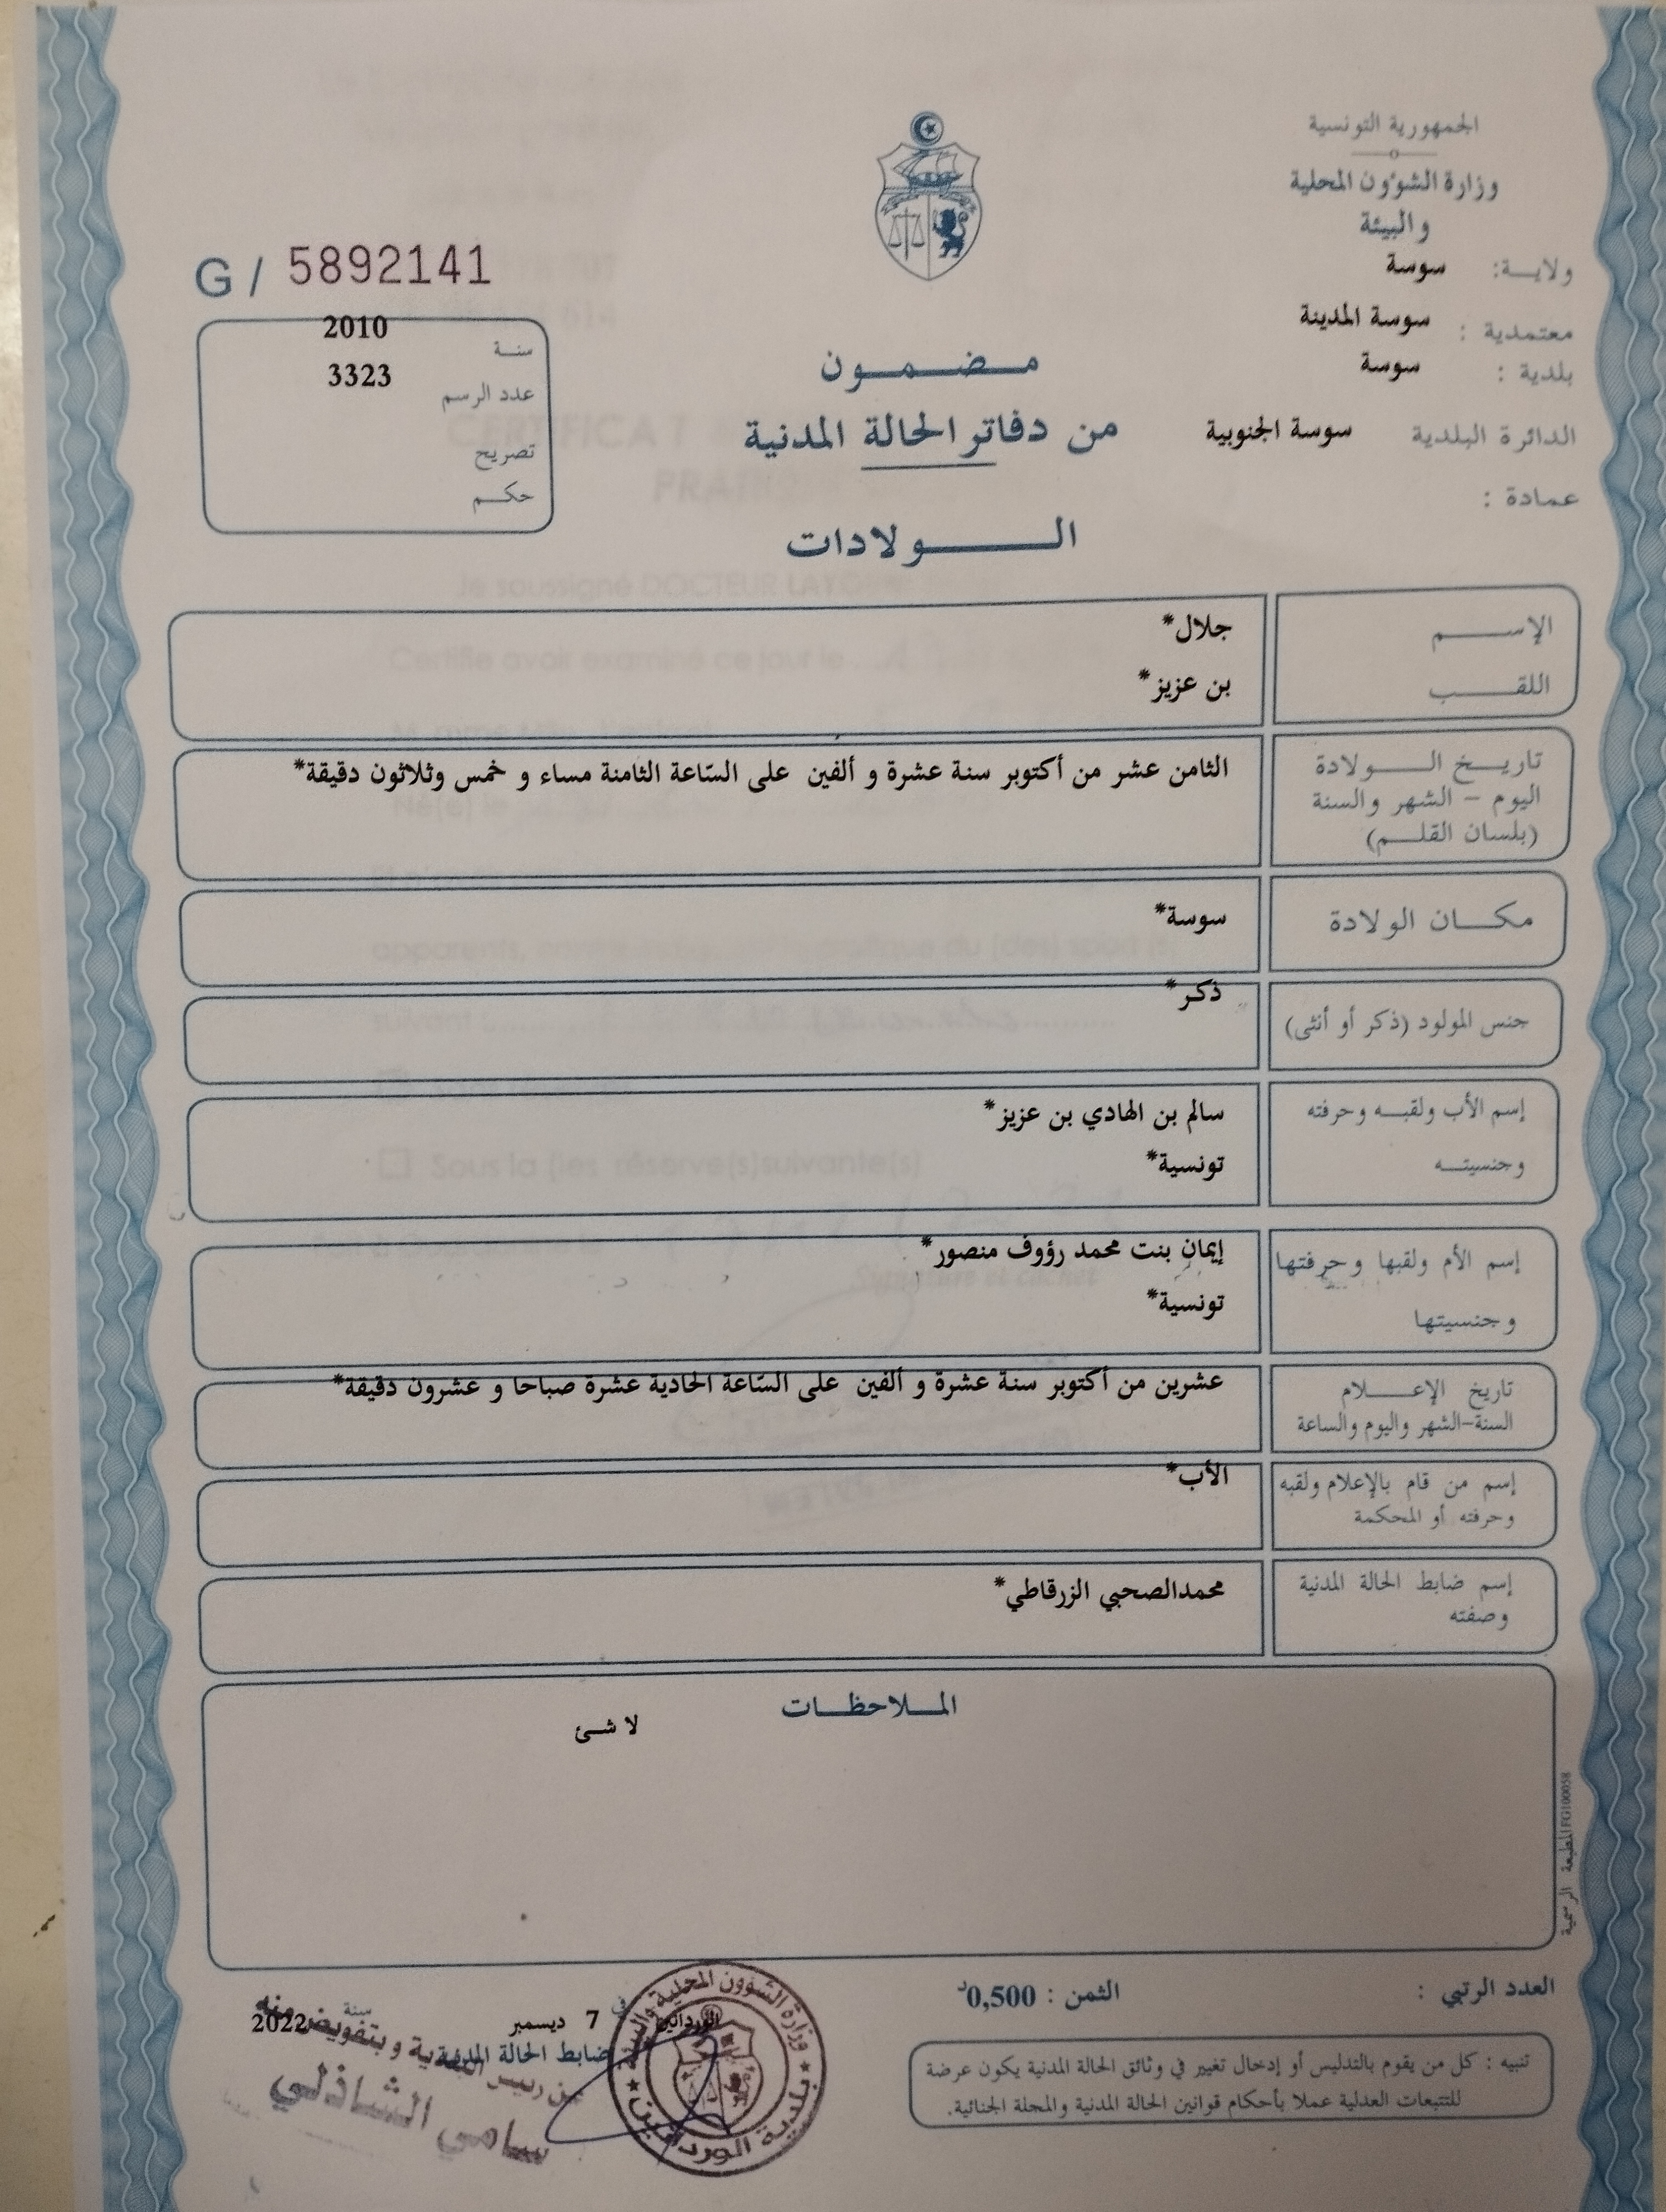 الجمهورية التونسية
وزارة الشؤون المحلية
والبيئة
ولاية: سوسة
معتمدية : سوسة المدينة
بلدية : سوسة
الدائرة البلدية سوسة الجنوبية
عمادة :
G / 5892141
سنة 2010
عدد الرسم 3323
تصريح
حكم
مضمون
من دفاتر الحالة المدنية
الولادات
الإسم جلال*
اللقب بن عزيز*
تاريخ الولادة الثامن عشر من أكتوبر سنة عشرة و ألفين على السّاعة الثامنة مساء و خمس وثلاثون دقيقة*
اليوم - الشهر والسنة
(بلسان القلم)
مكان الولادة سوسة*
جنس المولود (ذكر أو أنثى) ذكر*
إسم الأب ولقبه وحرفته سالم بن الهادي بن عزيز*
وجنسيته تونسية*
إسم الأم ولقبها وحرفتها إيمان بنت محمد رؤوف منصور*
وجنسيتها تونسية*
تاريخ الإعلام عشرين من أكتوبر سنة عشرة و ألفين على السّاعة الحادية عشرة صباحا و عشرون دقيقة*
السنة-الشهر واليوم والساعة
إسم من قام بالإعلام ولقبه الأب*
وحرفته أو المحكمة
إسم ضابط الحالة المدنية محمدالصحبي الزرقاطي*
وصفته
الملاحظات
لا شئ
المطبعة الرسمية FG100058
العدد الرتبي :
الثمن : 0,500د
تنبيه : كل من يقوم بالتدليس أو إدخال تغيير في وثائق الحالة المدنية يكون عرضة
للتتبعات العدلية عملا بأحكام قوانين الحالة المدنية والمجلة الجنائية.
الوردانين في 7 ديسمبر سنة 2022
ضابط الحالة المدنية
عن رئيس البلدية وبتفويض منه
سامي الشاذلي
وزارة الشؤون المحلية والبيئة
بلدية الوردانين